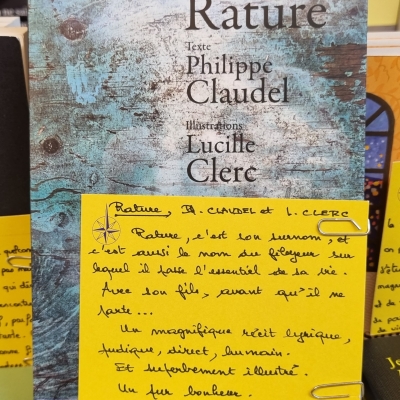 Rature
Texte
Philippe
Claudel
Illustrations
Lucille
Clerc
Rature, Ph. CLAUDEL et L. CLERC
Rature, c'est son surnom, et
c'est aussi le nom du fileyeur sur
lequel il passe l'essentiel de sa vie.
Avec son fils, avant qu'il ne
parte...
Un magnifique récit lyrique,
pudique, direct, humain.
Et superbement illustré.
Un pur bonheur.